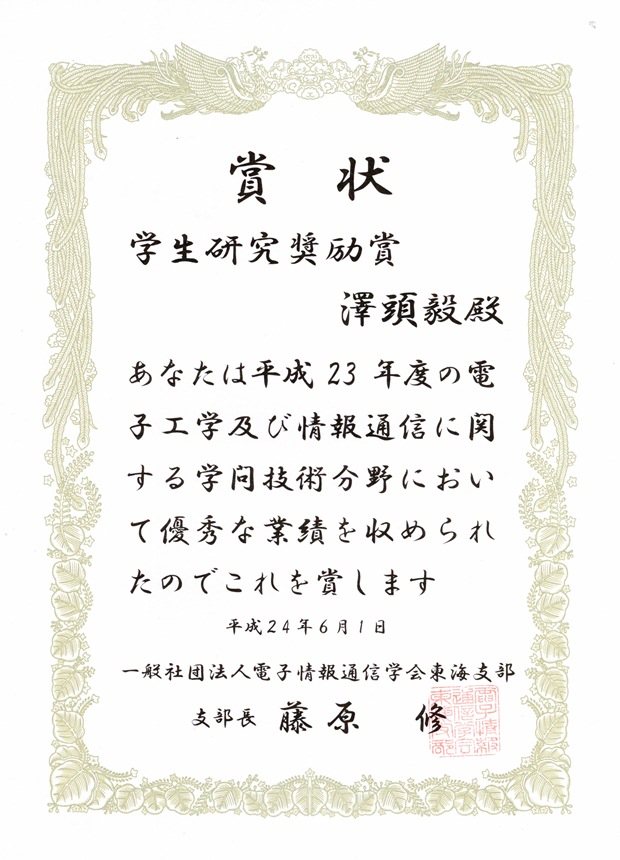 賞状
学生研究奨励賞
澤頭毅殿
あなたは平成23年度の電
子工学及び情報通信に関
する学問技術分野におい
て優秀な業績を収められ
たのでこれを賞します
平成24年6月1日
一般社団法人電子情報通信学会東海支部
支部長 藤原 修